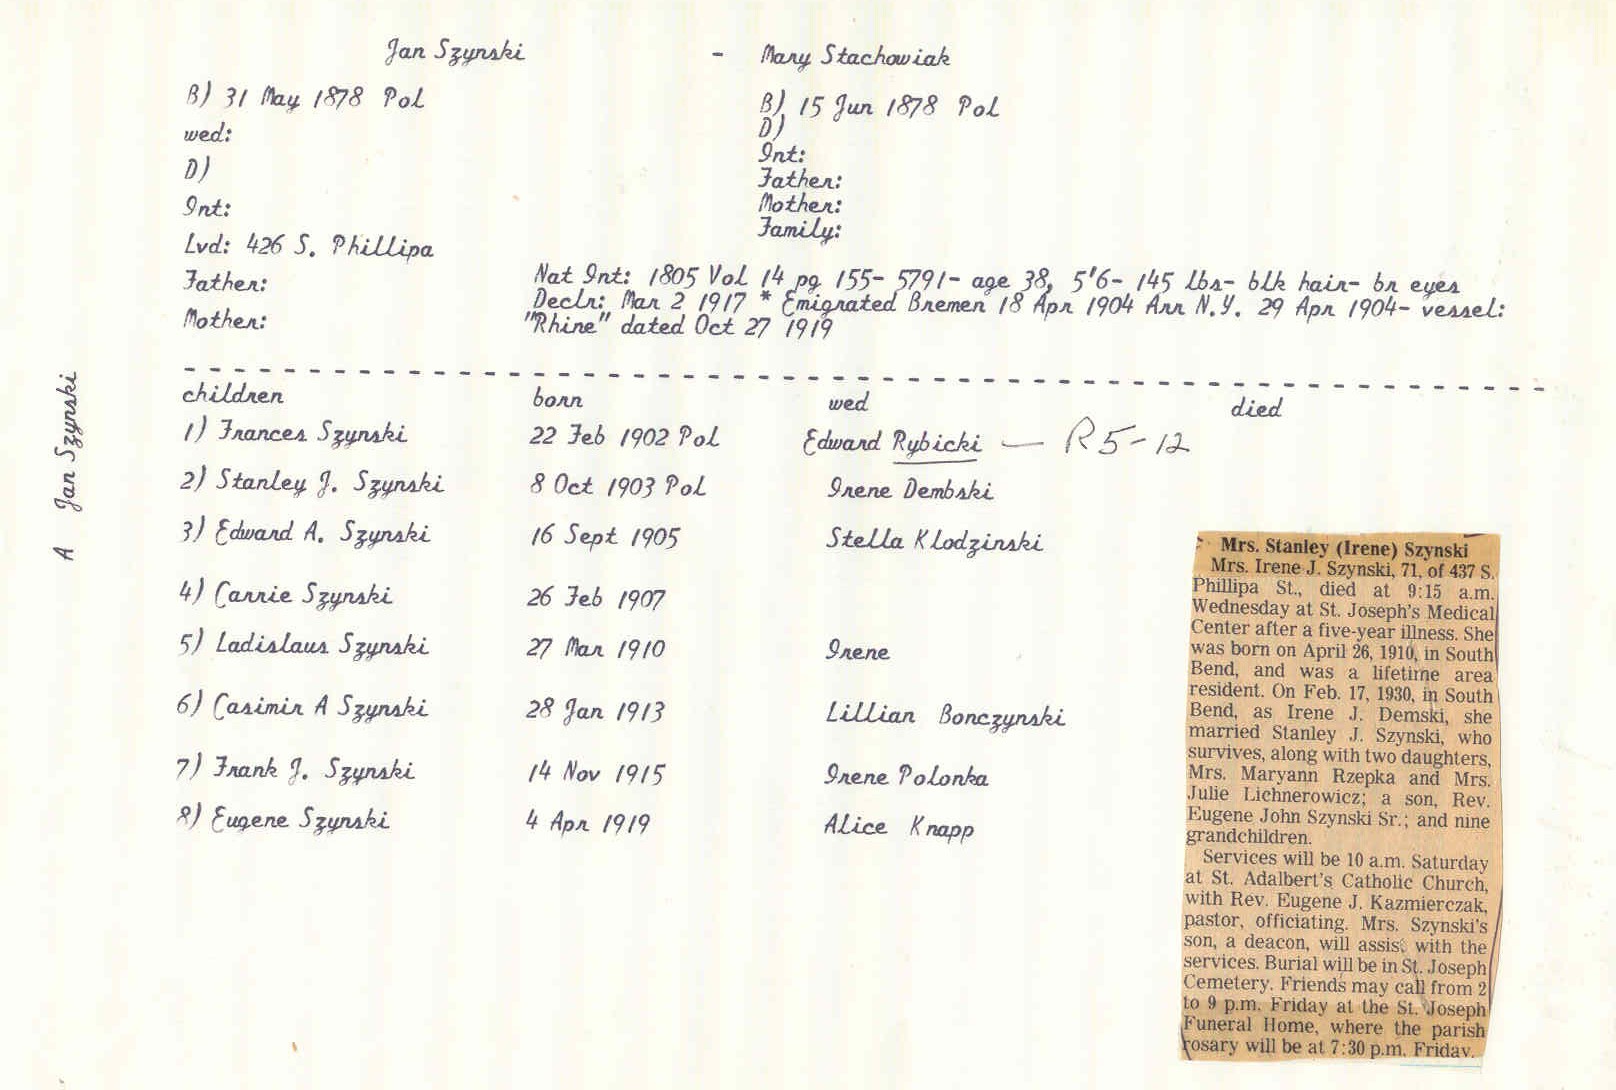 Jan Szynski - Mary Stachowiak
B) 31 May 1878 Pol
wed:
D)
Int:
Lvd: 426 S. Phillipa
Father:
Mother:
B) 15 Jun 1878 Pol
D)
Int:
Father:
Mother:
Family:
Nat Int: 1805 Vol 14 pg 155- 5791- age 38, 5'6- 145 lbs- blk hair- br eyes
Declr: Mar 2 1917 * Emigrated Bremen 18 Apr 1904 Arr N.Y. 29 Apr 1904- vessel:
"Rhine" dated Oct 27 1919
A Jan Szynski
children born wed died
1) Frances Szynski 22 Feb 1902 Pol Edward Rybicki — R5-12
2) Stanley J. Szynski 8 Oct 1903 Pol Irene Dembski
3) Edward A. Szynski 16 Sept 1905 Stella Klodzinski
4) Carrie Szynski 26 Feb 1907
5) Ladislaus Szynski 27 Mar 1910 Irene
6) Casimir A Szynski 28 Jan 1913 Lillian Bonczynski
7) Frank J. Szynski 14 Nov 1915 Irene Polonka
8) Eugene Szynski 4 Apr 1919 Alice Knapp
Mrs. Stanley (Irene) Szynski
Mrs. Irene J. Szynski, 71, of 437 S.
Phillipa St., died at 9:15 a.m.
Wednesday at St. Joseph's Medical
Center after a five-year illness. She
was born on April 26, 1910, in South
Bend, and was a lifetime area
resident. On Feb. 17, 1930, in South
Bend, as Irene J. Demski, she
married Stanley J. Szynski, who
survives, along with two daughters,
Mrs. Maryann Rzepka and Mrs.
Julie Lichnerowicz; a son, Rev.
Eugene John Szynski Sr.; and nine
grandchildren.
Services will be 10 a.m. Saturday
at St. Adalbert's Catholic Church,
with Rev. Eugene J. Kazmierczak,
pastor, officiating. Mrs. Szynski's
son, a deacon, will assist with the
services. Burial will be in St. Joseph
Cemetery. Friends may call from 2
to 9 p.m. Friday at the St. Joseph
Funeral Home, where the parish
rosary will be at 7:30 p.m. Friday.